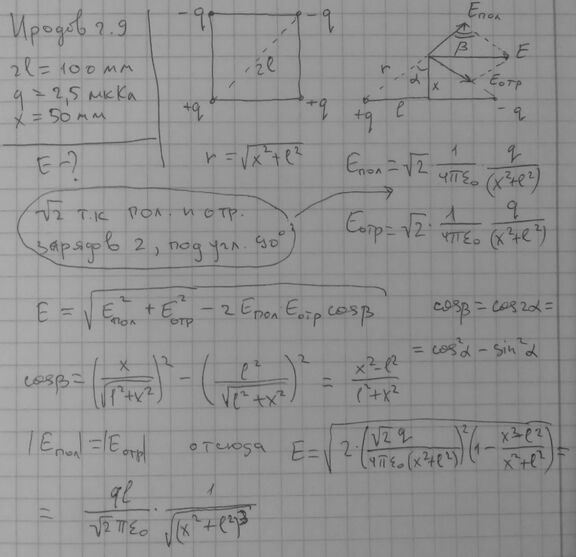 Иродов 2.9
2l = 100 мм
q = 2,5 мкКл
x = 50 мм
E - ?
-q -q
2l
+q +q
r = √(x²+l²)
Eпол
β
E
r α Eотр
x
l
+q -q
Eпол = √2 · 1/(4πε₀) · q/(x²+l²)
Eотр = √2 · 1/(4πε₀) · q/(x²+l²)
√2 т.к пол. и отр.
зарядов 2, под угл. 90°
E = √(E²пол + E²отр − 2 Eпол Eотр cosβ)
cosβ = cos2α =
= cos²α − sin²α
cosβ = (x/√(l²+x²))² − (l²/√(l²+x²))² = (x²−l²)/(l²+x²)
|Eпол| = |Eотр| отсюда E = √(2·(√2 q/(4πε₀(x²+l²)))² (1 − (x²−l²)/(x²+l²))) =
= ql/(√2 πε₀) · 1/√((x²+l²)³)